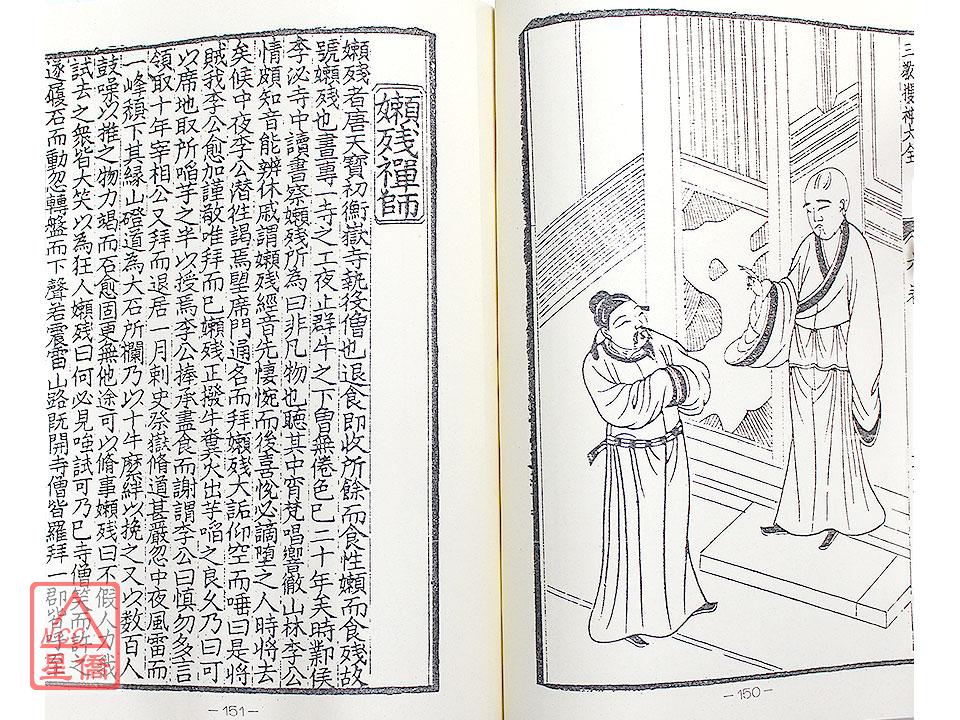 三教搜神大全
六卷
嬾殘禪師
嬾殘者唐天寶初衡嶽寺執役僧也退食即收所餘而食性嬾而食殘故
號嬾殘也晝專一寺之工夜止群牛之下曽無倦色已二十年矣時鄴侯
李泌寺中讀書察嬾殘所為曰非凡物也聽其中宵梵唱響徹山林李公
情頗知音能辨休戚謂嬾殘經音先悽惋而後喜悅必謫墮之人時將去
矣候中夜李公潜徃謁焉望席門通名而拜嬾殘大詬仰空而唾曰是將
賊我李公愈加謹敬唯拜而已嬾殘正撥牛糞火出芋啗之良久乃曰可
以席地取所啗芋之半以授焉李公捧承盡食而謝謂李公曰慎勿多言
領取十年宰相公又拜而退居一月刺史祭嶽脩道甚嚴忽中夜風雷而
一峰頹下其緣山磴道為大石所欄乃以十牛縻絆以挽之又以數百人
鼓噪以推之物力竭而石愈固更無他途可以脩事嬾殘曰不假人力我
試去之衆皆大笑以為狂人嬾殘曰何必見嗤試可乃已寺僧笑而許之
遂履石而動忽轉盤而下聲若震雷山路既開寺僧皆羅拜一郡皆呼至
星僑
-151-
-150-